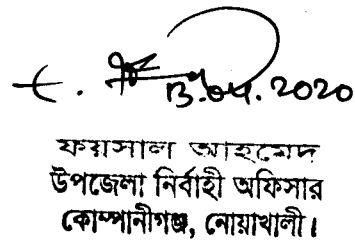 13.04.2020
ফয়সাল আহমেদ
উপজেলা নির্বাহী অফিসার
কোম্পানীগঞ্জ, নোয়াখালী।